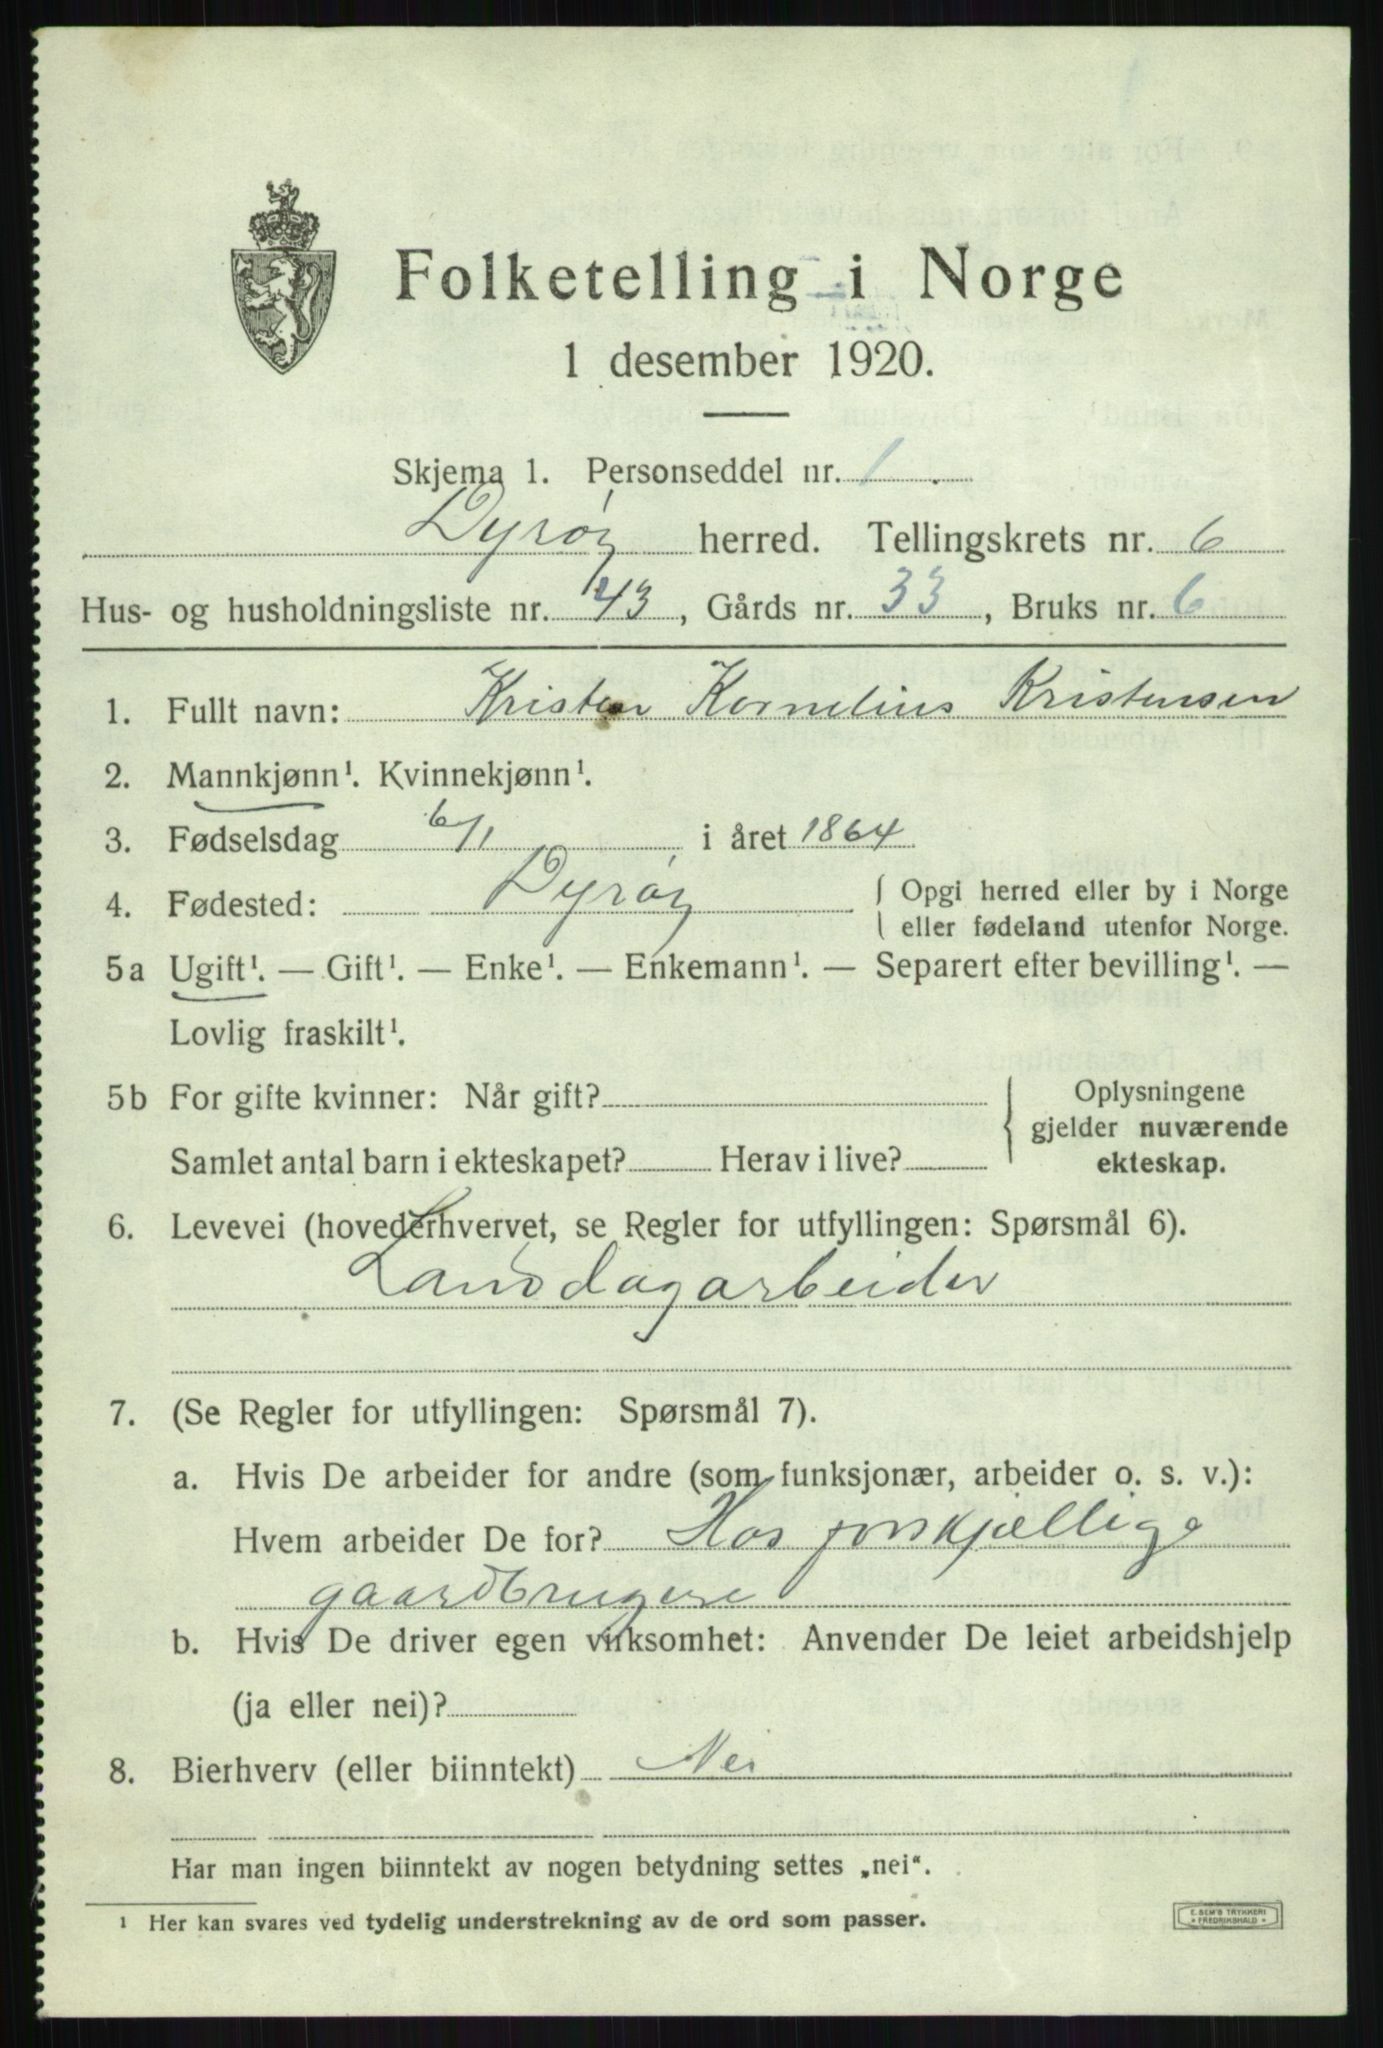 Folketelling i Norge
1 desember 1920.
Skjema 1. Personseddel nr. 1
Dyrøy herred. Tellingskrets nr. 6
Hus- og husholdningsliste nr. 43, Gårds nr. 33, Bruks nr. 6
1. Fullt navn: Kristen Kornelius Kristensen
2. Mannkjønn¹. Kvinnekjønn¹.
3. Fødselsdag 6/1 i året 1864
4. Fødested: Dyrøy { Opgi herred eller by i Norge
eller fødeland utenfor Norge.
5a Ugift¹. — Gift¹. — Enke¹. — Enkemann¹. — Separert efter bevilling¹. —
Lovlig fraskilt¹.
5b For gifte kvinner: Når gift? } Oplysningene
gjelder nuværende
Samlet antal barn i ekteskapet? Herav i live? ekteskap.
6. Levevei (hovederhvervet, se Regler for utfyllingen: Spørsmål 6).
Landdagarbeider
7. (Se Regler for utfyllingen: Spørsmål 7).
a. Hvis De arbeider for andre (som funksjonær, arbeider o. s. v.):
Hvem arbeider De for? Hos forskjællige
gaardbrugere
b. Hvis De driver egen virksomhet: Anvender De leiet arbeidshjelp
(ja eller nei)?
8. Bierhverv (eller biinntekt) Nei
Har man ingen biinntekt av nogen betydning settes „nei“.
¹ Her kan svares ved tydelig understrekning av de ord som passer.
E. SEM'S TRYKKERI
* FREDRIKSHALD *